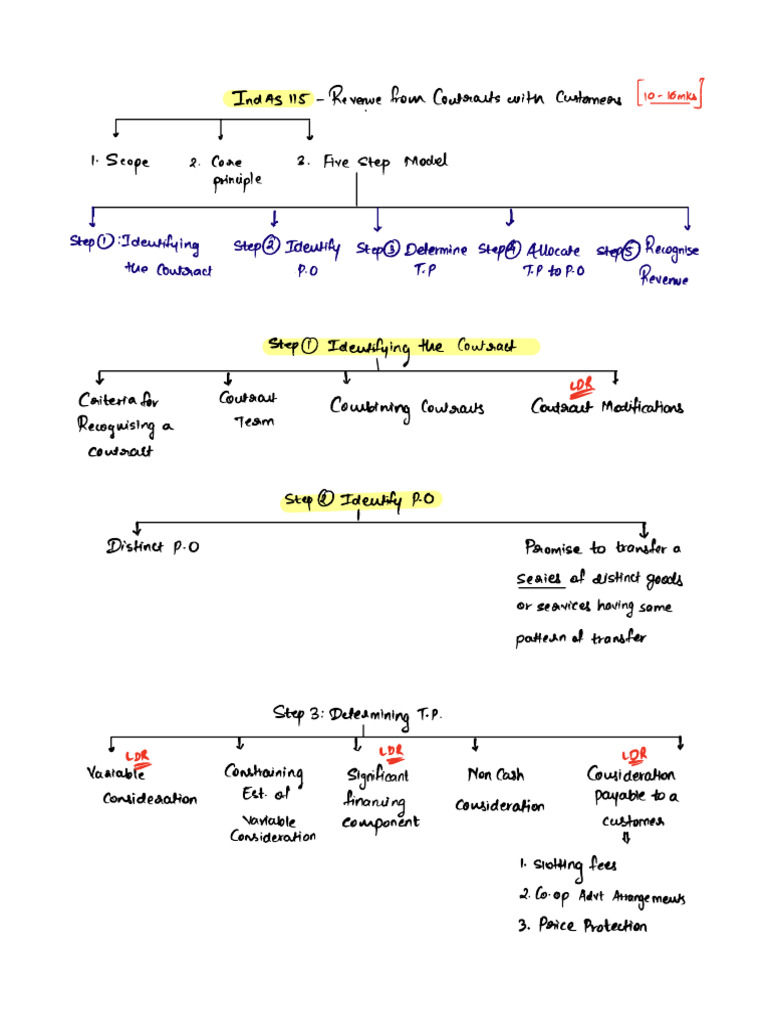 Ind AS 115 – Revenue from Contracts with Customers [10-16mks]
1. Scope 2. Core principle 3. Five Step Model
Step ① : Identifying the Contract
Step ② Identify P.O
Step ③ Determine T.P
Step ④ Allocate T.P to P.O
Step ⑤ Recognise Revenue
Step ① Identifying the Contract
Criteria for
Recognising a
contract
Contract
Term
Combining Contracts
LDR
Contract Modifications
Step ② Identify P.O
Distinct P.O
Promise to transfer a
series of distinct goods
or services having same
pattern of transfer
Step 3: Determining T.P.
LDR
Variable
Consideration
Constraining
Est. of
Variable
Consideration
LDR
Significant
financing
component
Non Cash
consideration
LDR
Consideration
payable to a
customer
1. Slotting fees
2. Co-op Advt Arrangements
3. Price Protection